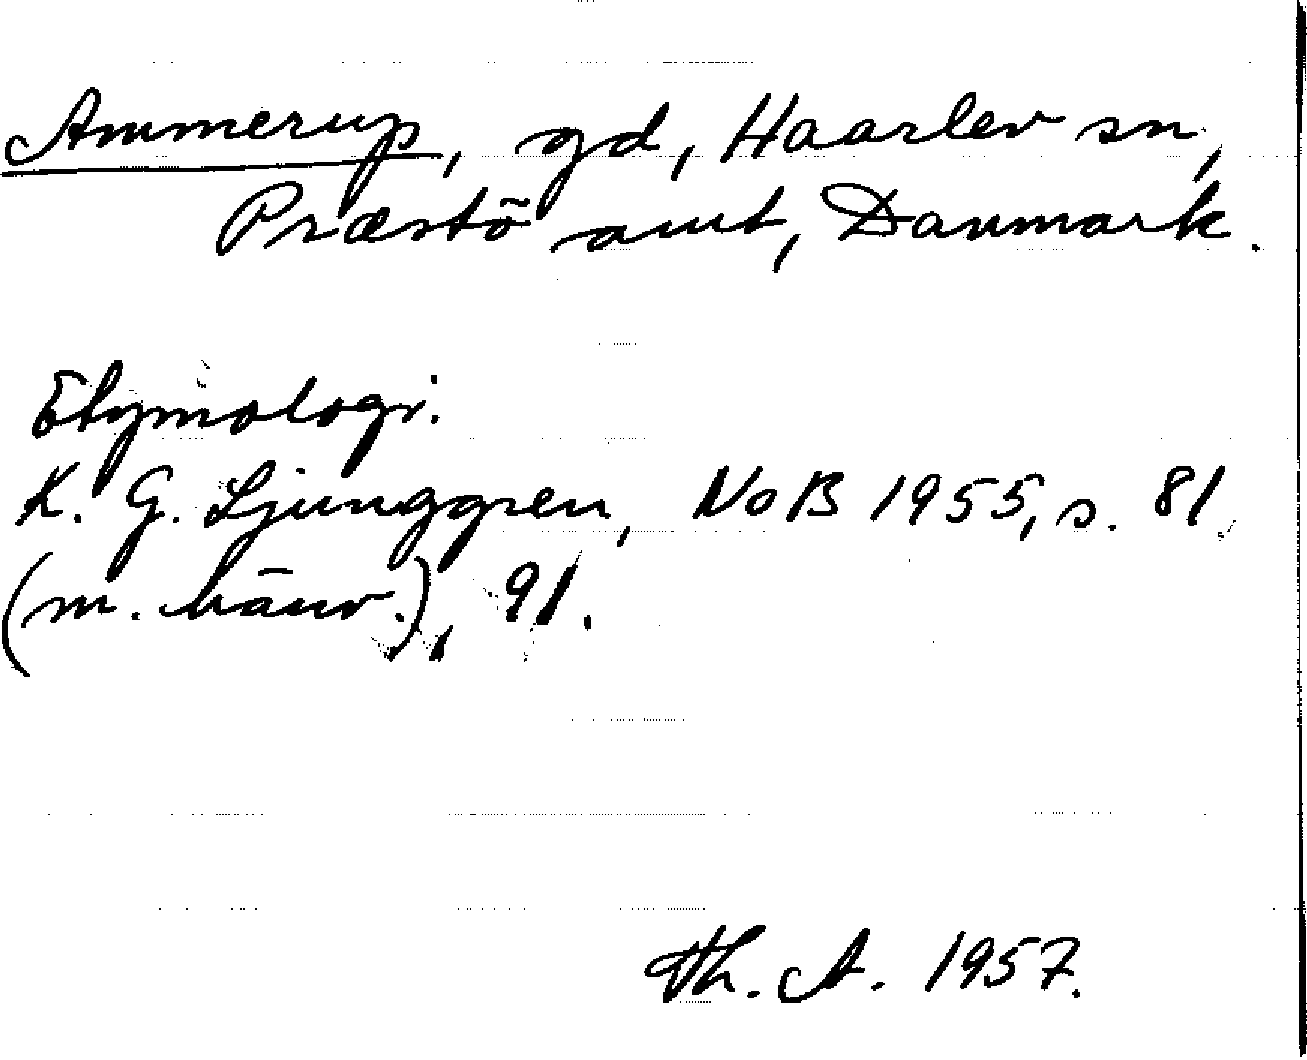 Ammerup, gd, Haarlev sn,
Præstö amt, Danmark.
Etymologi:
K. G. Ljunggren, NoB 1955, s. 81
(m. hänv.), 91.
Th. A. 1957.